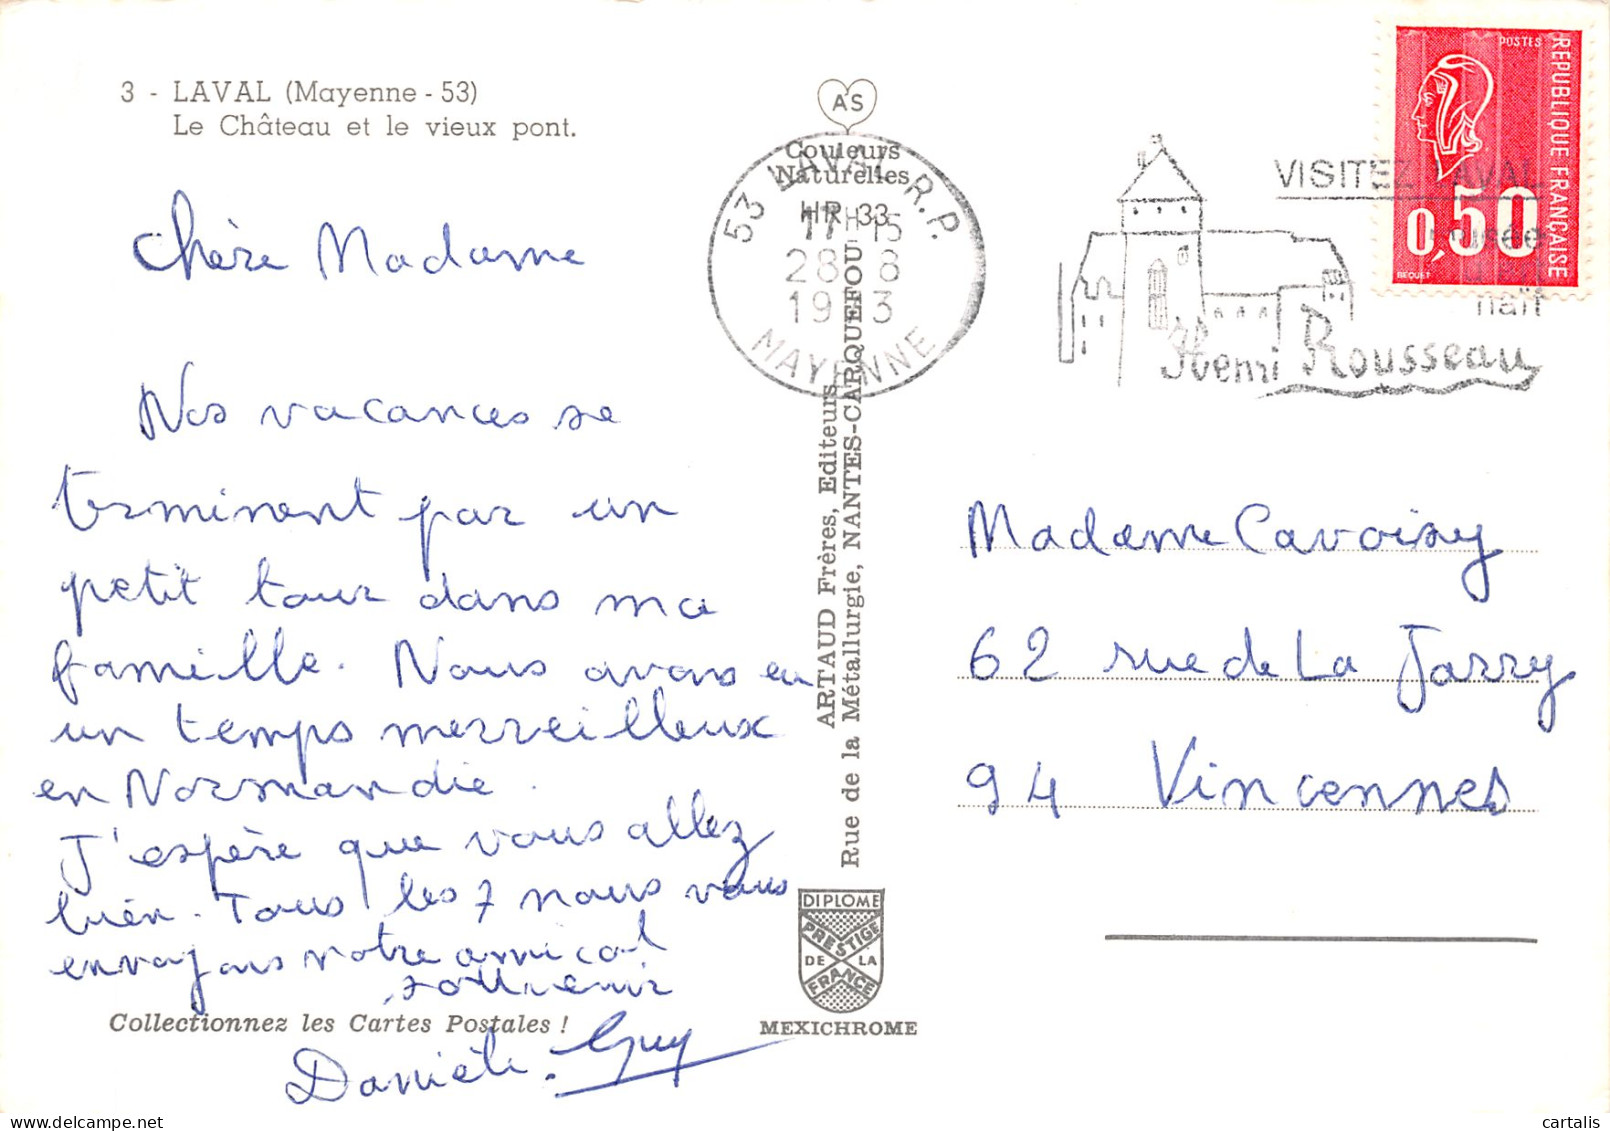 3 - LAVAL (Mayenne - 53)
Le Château et le vieux pont.
Chère Madame
Nos vacances se
terminent par un
petit tour dans ma
famille. Nous avons eu
un temps merveilleux
en Normandie.
J'espère que vous allez
bien. Tous les 7 nous vous
envoyons notre amical
souvenir
Danièle. Guy
Collectionnez les Cartes Postales !
AS
Couleurs
Naturelles
HR 33
53 LAVAL R.P.
17H15
28 8
1973
MAYENNE
ARTAUD Frères, Editeurs
Rue de la Métallurgie, NANTES-CARQUEFOU
DIPLOME
PRESTIGE
DE LA
FRANCE
MEXICHROME
VISITEZ LAVAL
musée
naïf
Henri Rousseau
POSTES
REPUBLIQUE FRANCAISE
0,50
BEQUET
Madame Cavoisy
62 rue de La Jarry
94 Vincennes
cartalis